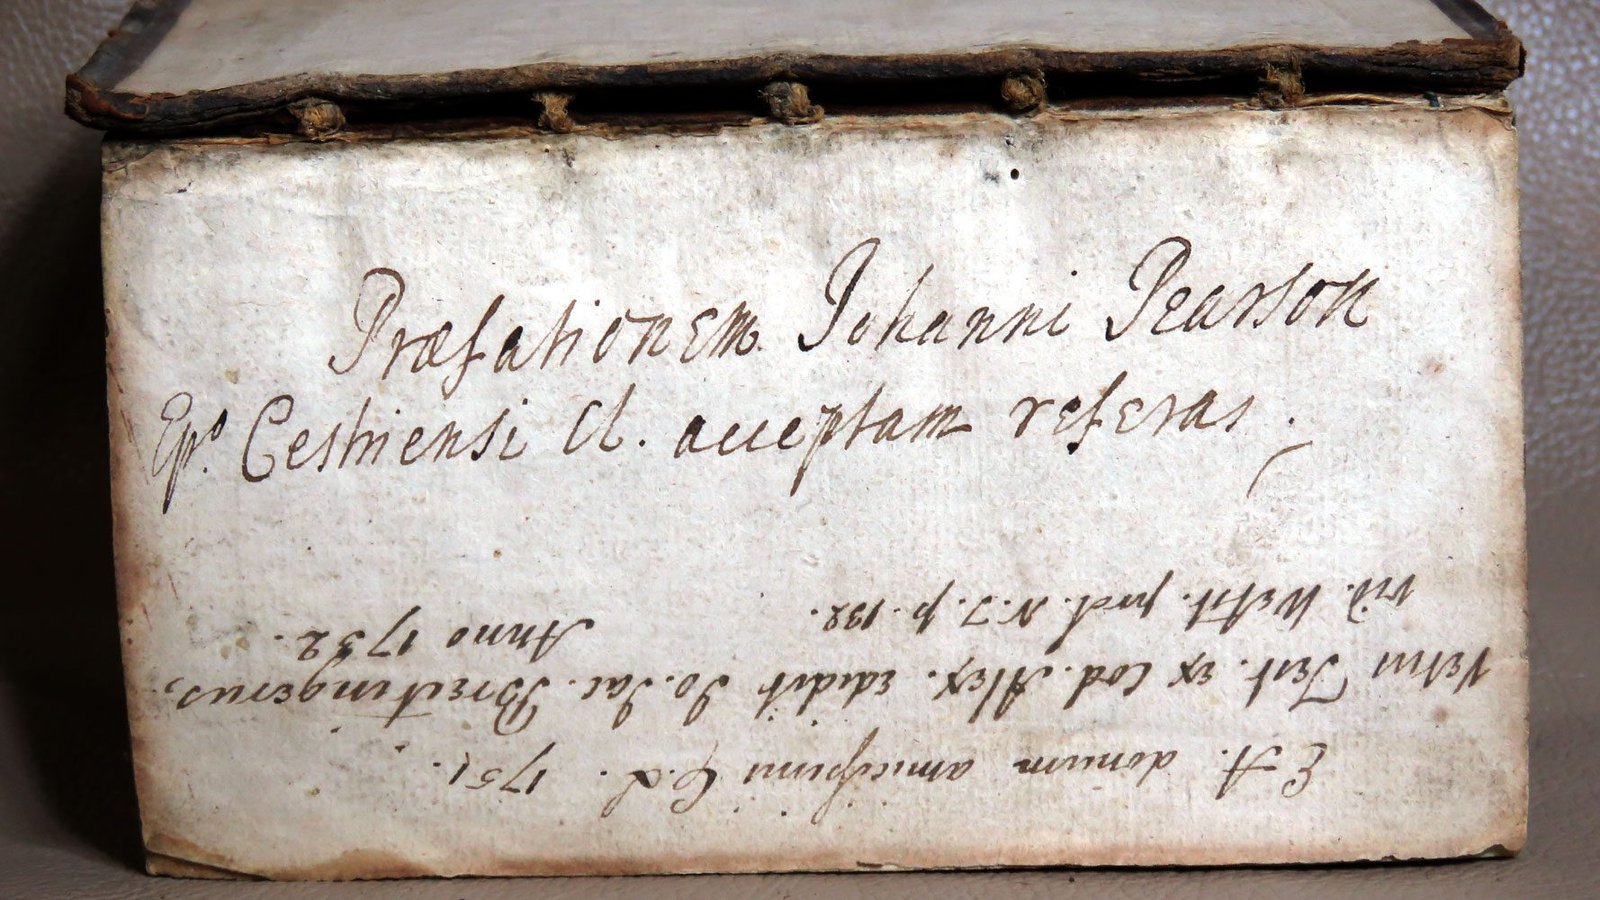 Præfationem Johanni Pearson
Epo. Cestriensi Cl. acceptam referas.
E A. donum amicissimi G. L. 1751.
Vetus Test. ex Cod. Alex. edidit Jo. Jac. Breitingerus,
Anno 1732.
vid. Wetst. prol. N. T. p. 132.